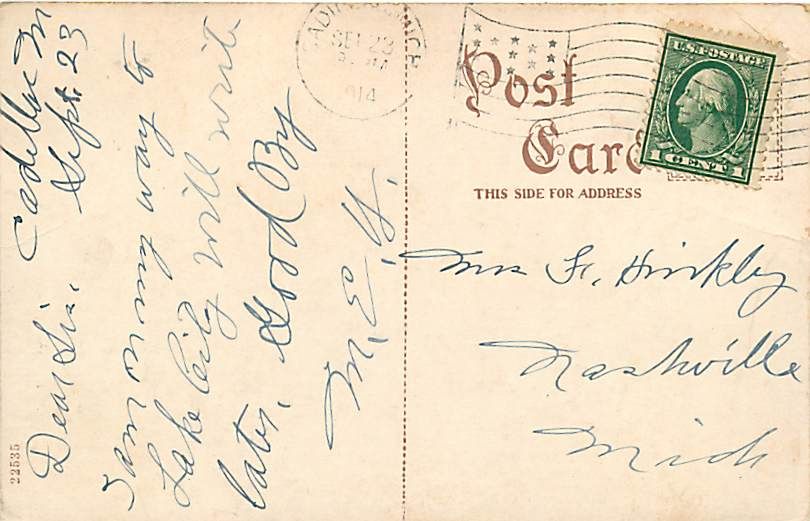 Cadillac M
Sept. 23
Dear Sis,
I am on my way to
Lake City will write
later. Good By
M. E. H.
22535
CADILLAC, MICH
SEP 23
1914
Post
Card
THIS SIDE FOR ADDRESS
U.S. POSTAGE
1 CENT 1
Mrs Fr. Hinkley
Nashville
Mich